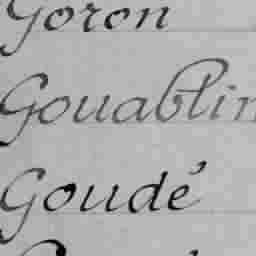 Goron
Gouablin
Goudé